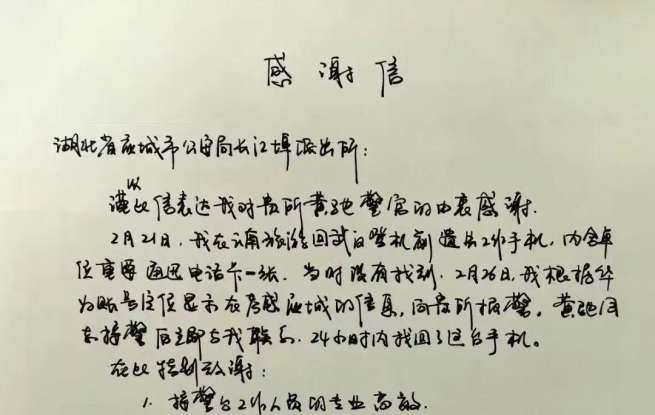 感谢信
湖北省应城市公安局长江埠派出所：
谨以此信表达我对贵所黄驰警官的由衷感谢.
2月21日，我在云南旅游回武汉登机前遗失工作手机，内含单
位重要通迅电话卡一张. 当时没有找到. 2月26日，我根据华
为账号定位显示在孝感应城的信息，向贵所报警。黄驰同
志接警后立即与我联系. 24小时内找回了这台手机。
在此特别致谢：
1. 接警台工作人员的专业高效.